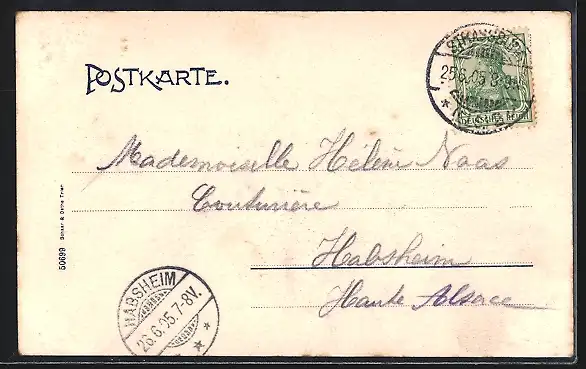 POSTKARTE.
STRASSBURG
25.6.05.8-9
DEUTSCHES REICH
Mademoiselle Hélène Naas
Couturière
Habsheim
Haute Alsace
50699
HABSHEIM
26.6.05.7-8V.